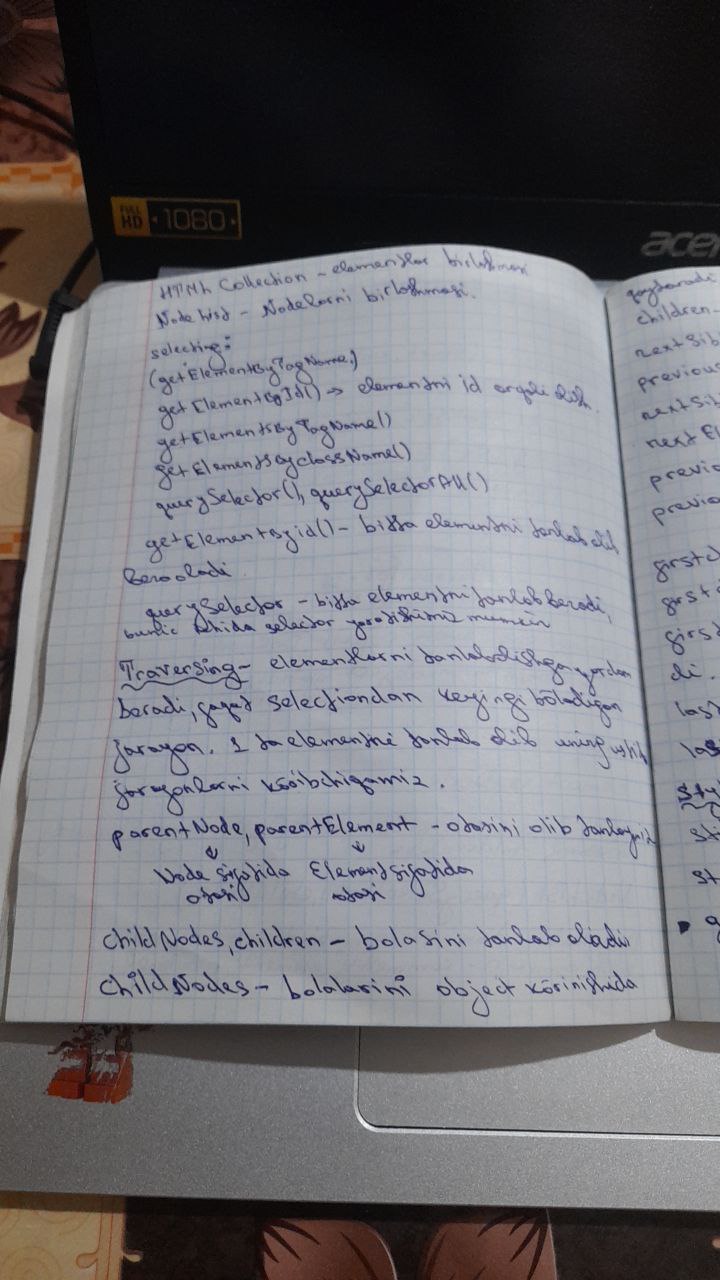 FULL HD 1080
acer
HTML Collection - elementlar birlashmasi
Node list - Nodelarni birlashmasi.
selecting:
(getElementByTagName.)
getElementById() → elementni id orqali olish.
getElementsByTagName()
getElementsByclassName()
querySelector(), querySelectorAll()
getElementByid() - bitta elementni tanlab olib
Bera oladi.
querySelector - bitta elementni tanlab Beradi,
selector yaratishimiz mumkin
Traversing - elementlarni
beradi, faqat selectiondan keyingi böladigan
jarayon. 1 ta elementni tanlab olib uning
jarayonlarni köribchiqamiz.
parentNode, parentElement - otasini olib
Node sifatida Element sifatida
otasi otasi
childNodes, children - bolasini tanlab oladi
childNodes - bolalarini object körinishida
qaytaradi
children -
nextSib
previous
nextSib
nextEl
previo
previo
di.
las
las
sty
st
st